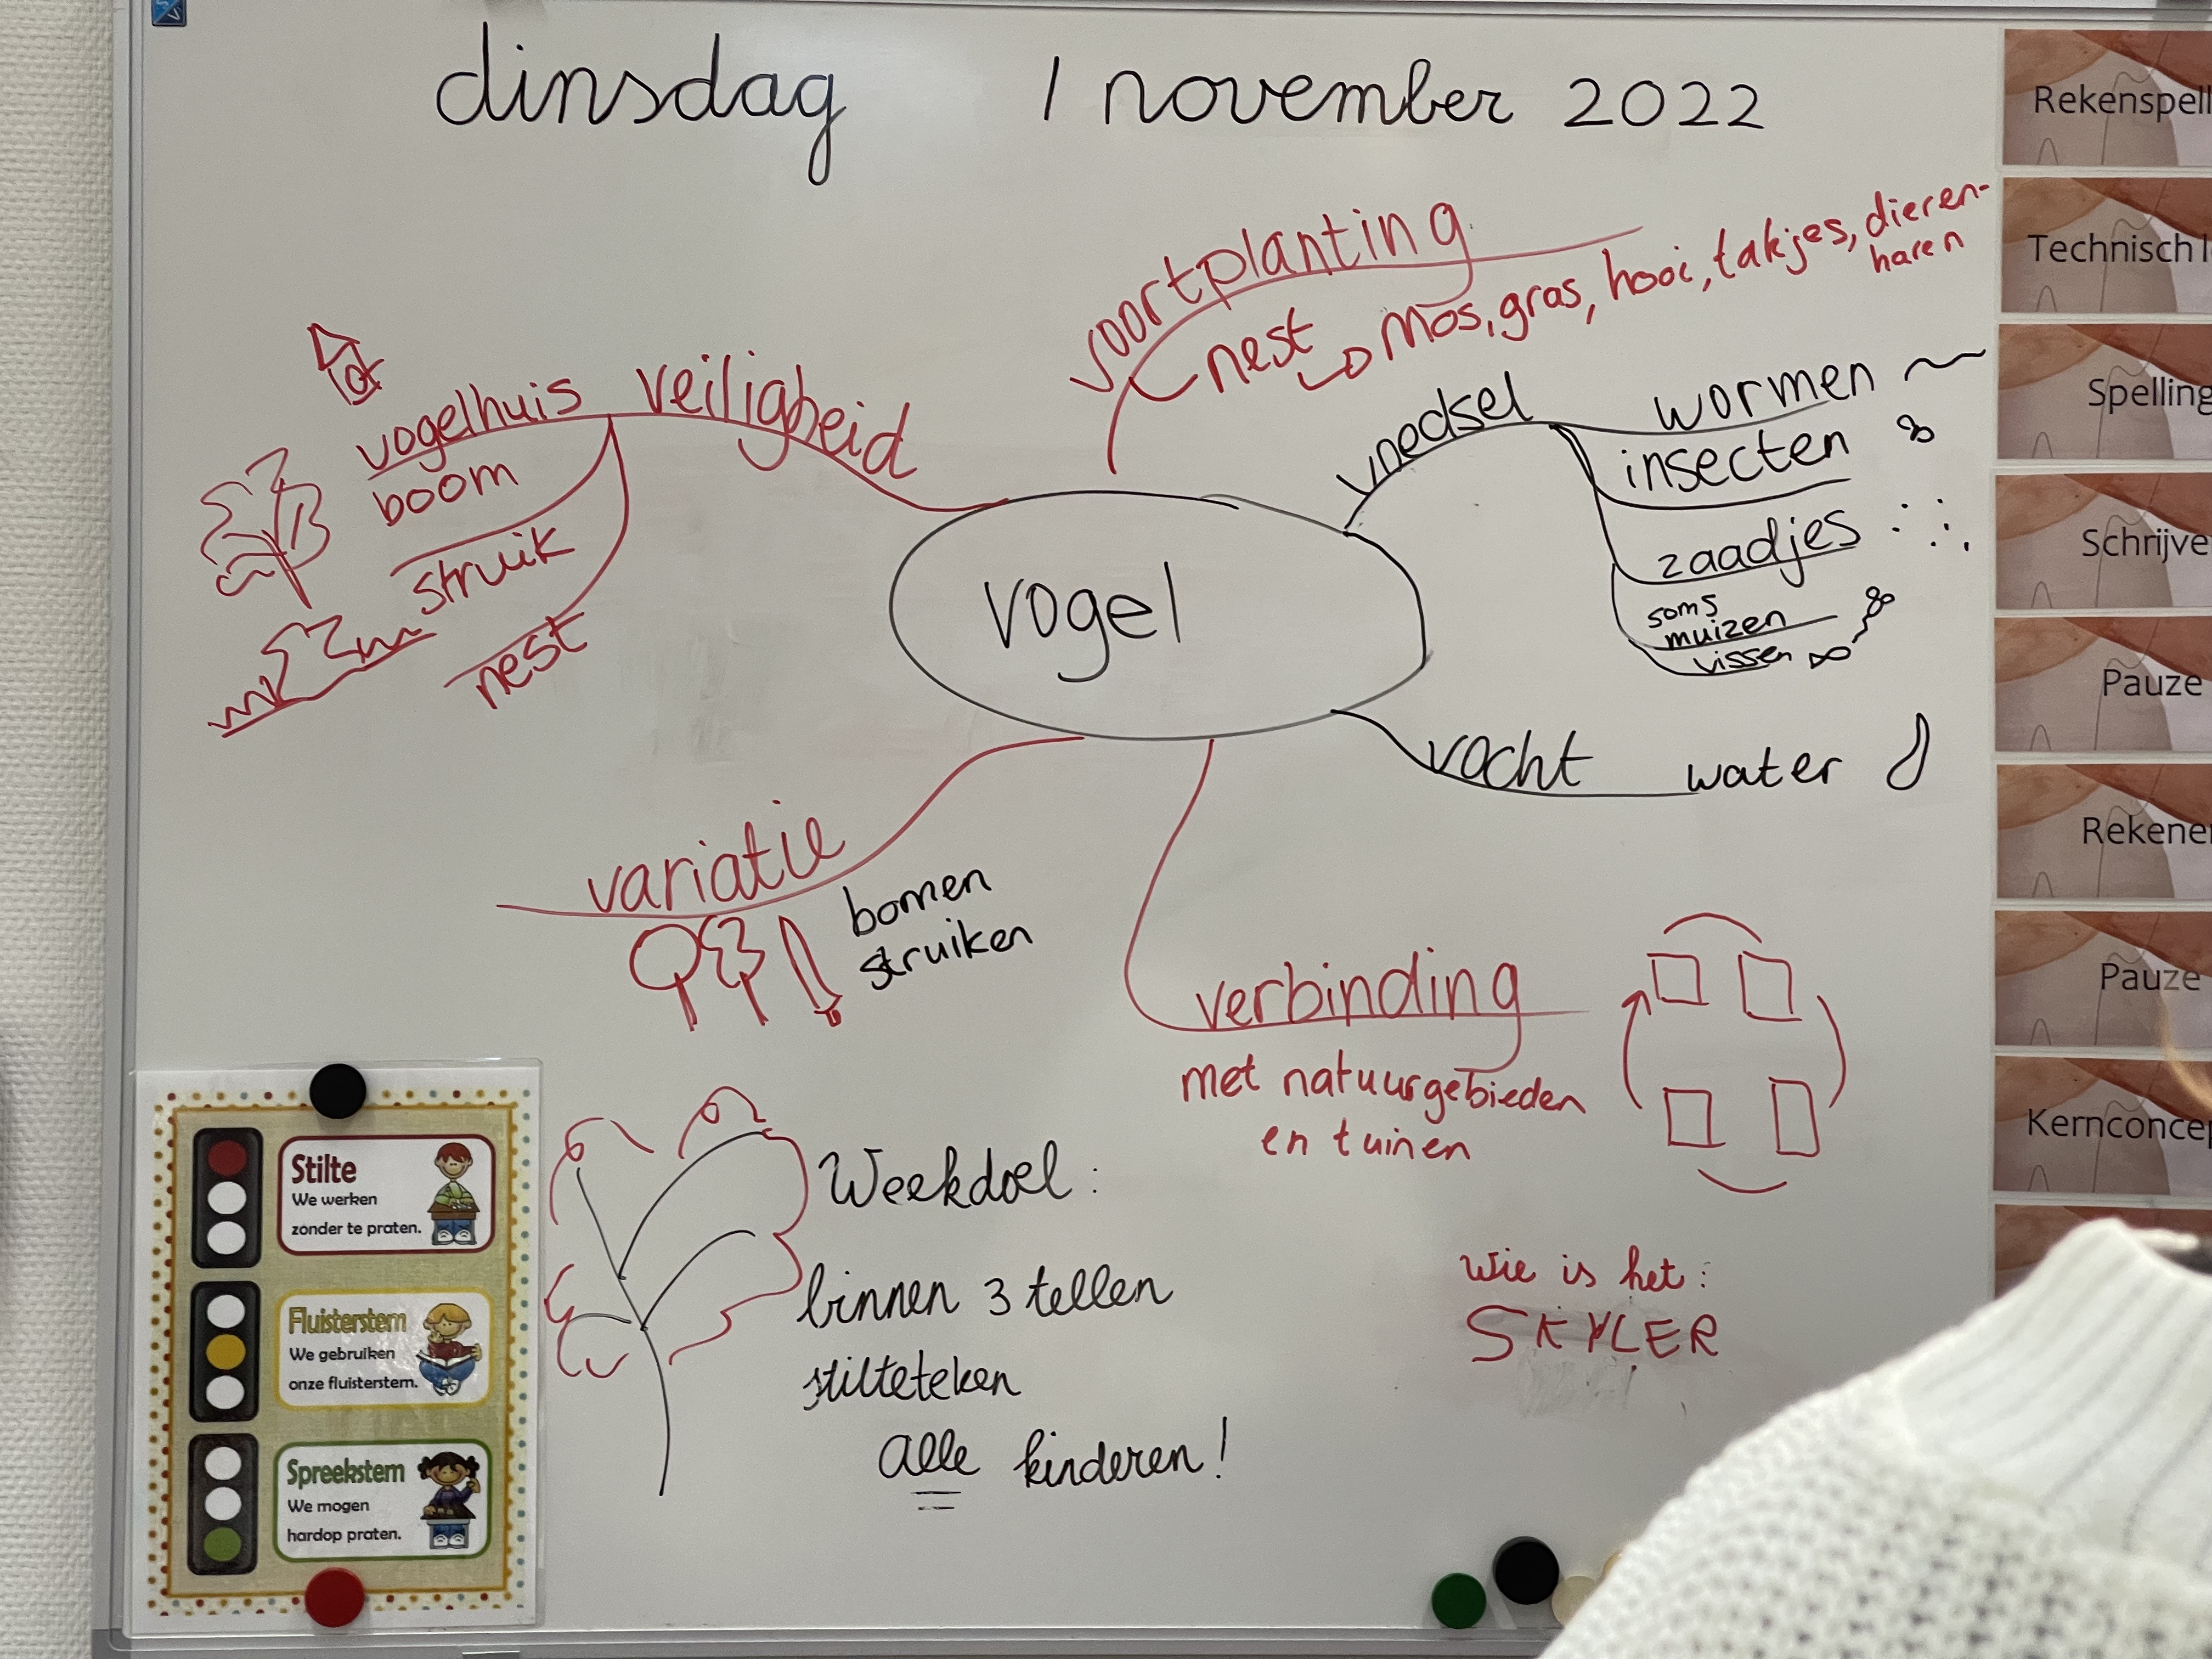 dinsdag 1 november 2022
voortplanting
nest mos, gras, hooi, takjes, dieren-
haren
veiligheid
vogelhuis
boom
struik
nest
voedsel
wormen
insecten
zaadjes
soms
muizen
vissen
vogel
vocht water
variatie
bomen
struiken
verbinding
met natuurgebieden
en tuinen
Weekdoel:
binnen 3 tellen
stilteteken
alle kinderen!
wie is het:
SKYLER
Stilte
We werken
zonder te praten.
Fluisterstem
We gebruiken
onze fluisterstem.
Spreekstem
We mogen
hardop praten.
Rekenspell
Technisch l
Spelling
Schrijve
Pauze
Rekene
Pauze
Kernconcep